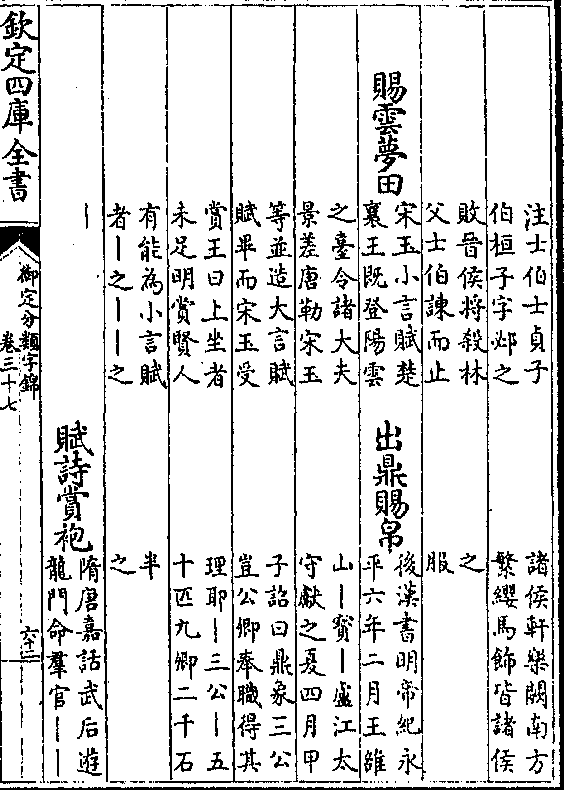 注士伯士貞子
伯桓子字邲之
敗晉侯將殺林
父士伯諫而止
賜雲夢田
宋玉小言賦楚
襄王既登陽雲
之臺令諸大夫
景差唐勒宋玉
等並造大言賦
賦畢而宋玉受
賞王曰上坐者
未足明賞賢人
有能為小言賦
者丨之丨丨之
丨
諸侯軒樂闕南方
繁纓馬飾皆諸侯
之
服
出鼎賜帛
後漢書明帝紀永
平六年二月王雒
山丨寳丨盧江太
守獻之夏四月甲
子詔曰鼎象三公
豈公卿奉職得其
理耶丨三公丨五
十匹九卿二千石
半
之
賦詩賞袍
隋唐嘉話武后遊
龍門命羣官丨丨
欽定四庫全書
御定分類字錦
卷三十七
六十二